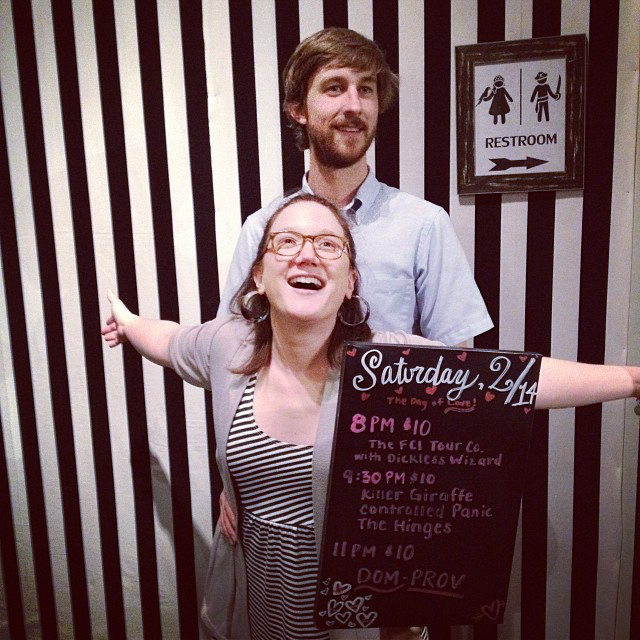 RESTROOM
Saturday, 2/14
The Day of Love!
8PM $10
The FCI Tour Co.
with Dickless Wizard
9:30 PM $10
Killer Giraffe
Controlled Panic
The Hinges
11PM $10
DOM-PROV